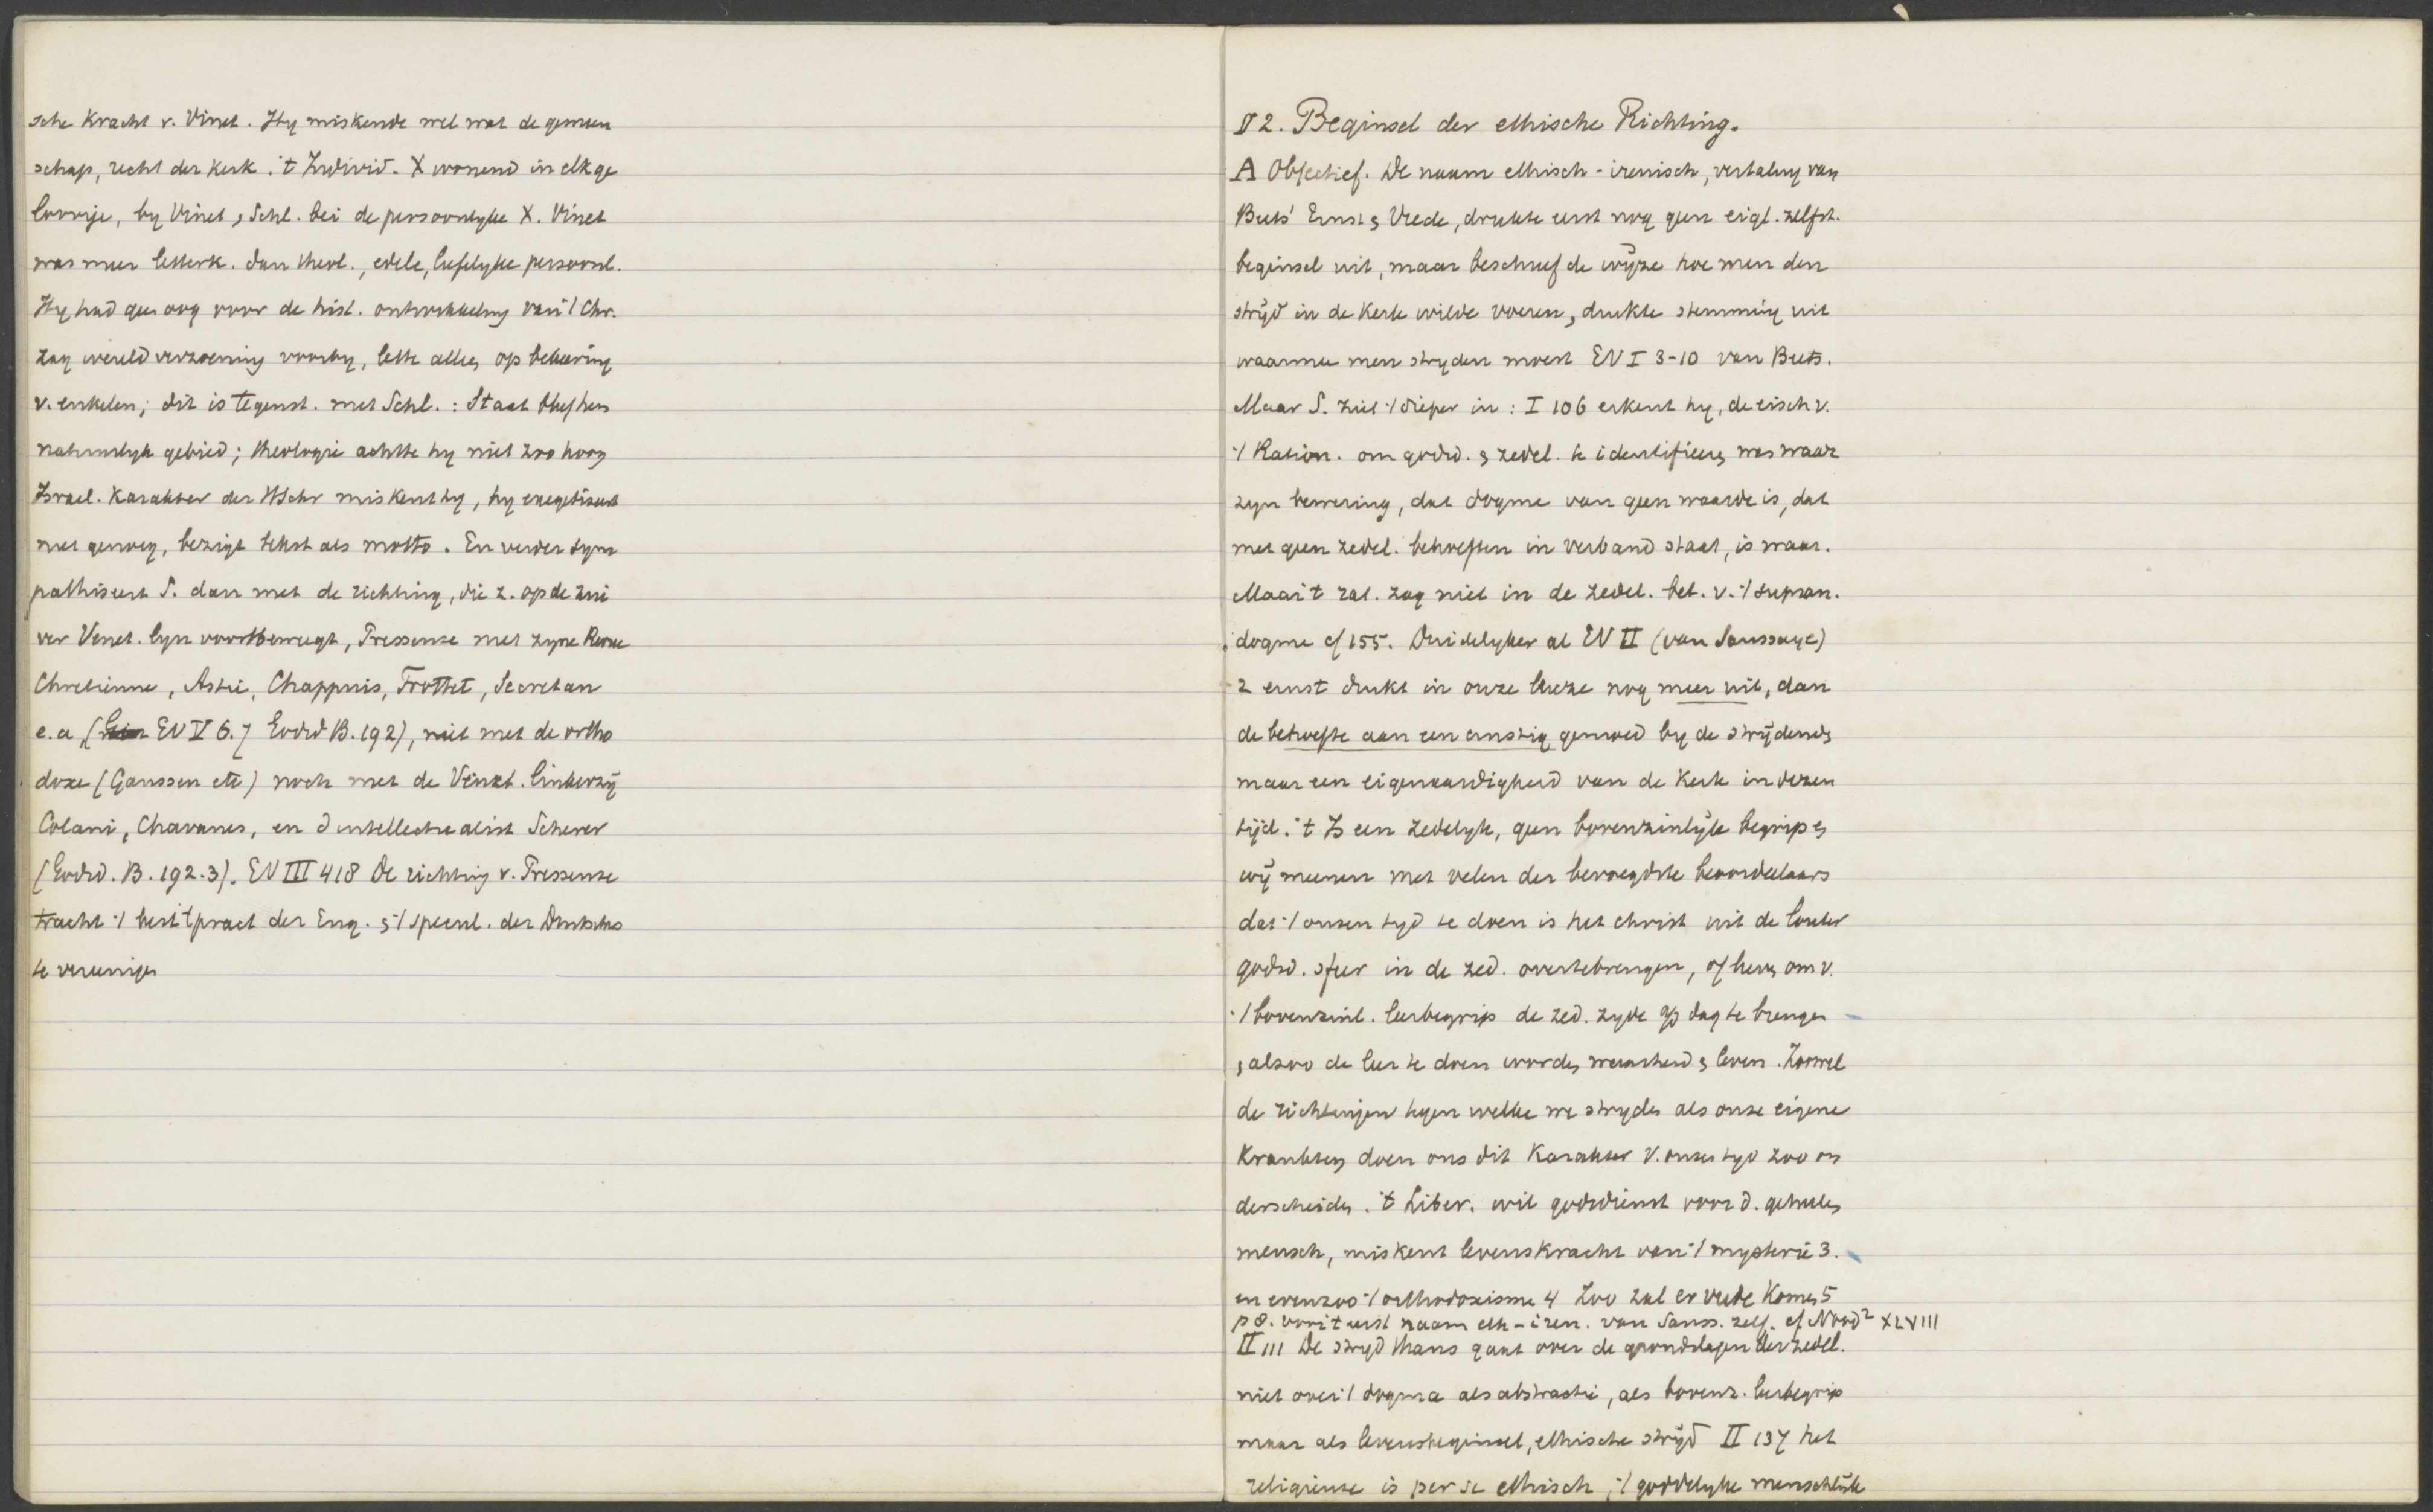 sche kracht v. Vinet. Hy miskende wel wat de gemeen
schap, recht der kerk. 't Individ. X wonend in elk ge
loovige, by Vinet & Schl. bei de persoonlyke X. Vinet
was meer letterk. dan theol., edele, liefelyke persoonl.
Hy had geen oog voor de hist. ontwikkeling van 't Chr.
zag wereldverzoening voorby, lette alleen op bekeering
v. enkelen; dit is tegenst. met Schl. : Staat
natuurlyk gebied; theologie achtte hy niet zoo hoog
Israel. karakter der HSchr miskent hy, hy exegetiseert
niet genoeg, bezigt tekst als motto. En verder sym
pathiseert S. dan met de richting, die z. op de zui
ver Vinet. lyn voortbeweegt, Pressense met zyne Revue
Chretienne, Astié, Chappuis, Trottet, Secretan
e.a. (EV V 6.7 Godsd B. 192), niet met de ortho
doxe (Gaussen etc) noch met de Vinet. linkerzij
Colani, Chavanes, en d intellectualist Scherer
(Godsd. B. 192.3). EV III 418 De richting v. Pressense
tracht 't best 't pract der Eng. & 't specul. der Duitschers
te vereenigen
§ 2. Beginsel der ethische Richting.
A Objectief. De naam ethisch-irenisch, vertaling van
Buts' Ernst & Vrede, drukte eerst nog geen eigl. zelfst.
beginsel uit, maar beschreef de wijze hoe men den
strijd in de kerk wilde voeren, drukte stemming uit
waarmee men stryden moest EV I 3-10 van Buts.
Maar S. ziet 't dieper in : I 106 erkent hy, de eisch v.
't Ration. om godsd. & zedel. te identificeeren was waar
zyn bewering, dat dogme van geen waarde is, dat
met geen zedel. behoeften in verband staat, is waar.
Maar 't rat. zag niet in de zedel. bet. v. 't supran.
dogme cf 155. Duidelyker al EV II (van Saussaye)
2 ernst drukt in onze leuze nog meer uit, dan
de behoefte aan een ernstig gemoed by de strijdenden
maar een eigenaardigheid van de kerk in dezen
tijd. 't Is een zedelyk, geen bovenzinlijk begrip &
wij meenen met velen der bevoegdste beoordeelaars
dat 't onzen tyd te doen is het christ uit de louter
godsd. sfeer in de zed. overtebrengen, of liever om v.
't bovenzinl. leerbegrip de zed. zyde op dag te brengen
& alzoo de leer te doen worden waarheid & leven. Zoowel
de richtingen tegen welke we stryden als onze eigene
krankten doen ons dit karakter v. onzen tyd zoo on
derscheiden. 't Liber. wil godsdienst voor d. geheelen
mensch, miskent levenskracht van 't mysterie 3.
en evenzoo 't orthodoxisme 4 Zoo zal er vrede komen 5
p 8. voor 't eerst naam eth-iren. van Sauss. zelf. cf Noord² XLVIII
II 111 De stryd thans gaat over de grondslagen der zedel.
niet over 't dogma als abstractie, als bovenz. leerbegrip
maar als levensbeginsel, ethische strijd II 137 het
religieuse is per se ethisch, 't goddelyke menschlijk